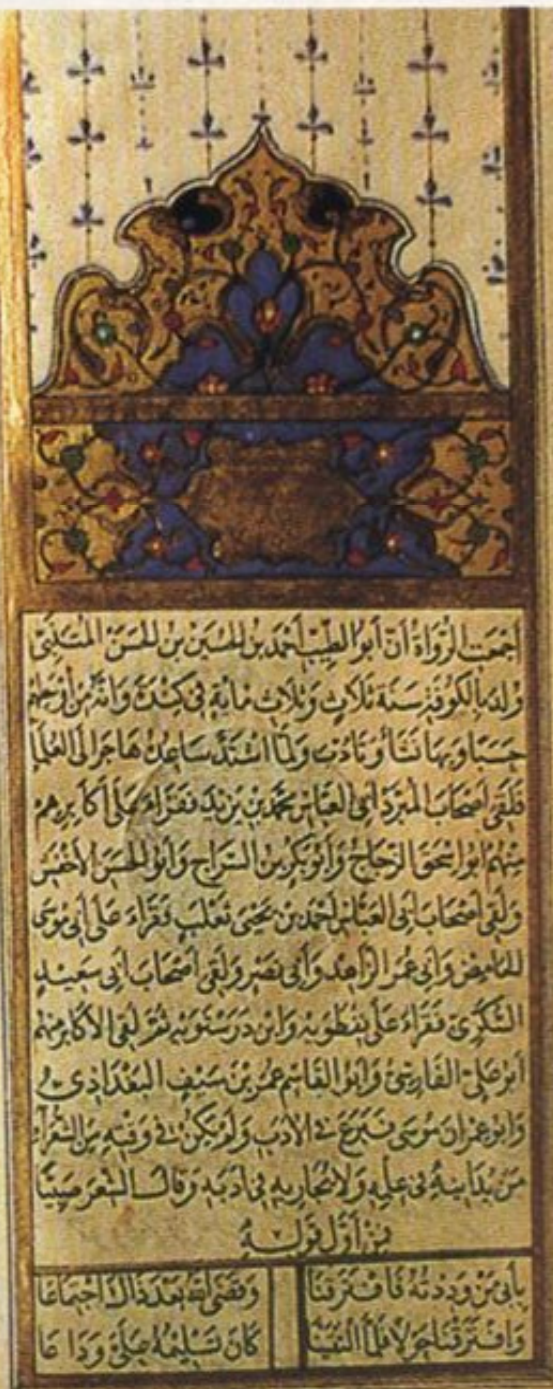 أجمعت الرواة أن أبو الطيب أحمد بن الحسين بن الحسن المتنبي
ولد بالكوفة سنة ثلاث وثلاث مائة في كندة وأنه من أوسطهم
حسبا وبها نشأ وتأدب ولما اشتد ساعده هاجر الى العلما
فلقي أصحاب المبرد ابي العباس محمد بن يزيد فقراء على أكابرهم
منهم ابو اسحق الزجاج وأبو بكر بن السراج وأبو الحسن الأخفش
ولقي أصحاب ابي العباس أحمد بن يحيى ثعلب فقراء على أبي موسى
الحامض وأبي عمر الزاهد وأبي نصر ولقي أصحاب أبي سعيد
السكري فقراء على نفطويه وابن درستويه ثم لقي الأكابر منهم
أبو علي الفارسي وأبو القاسم عمر بن سيف البغدادي
وابو عمران موسى فبرع في الأدب ولم يكن في وقته من الشعراء
من يدانيه في علمه ولا يجاريه في أدبه وقال الشعر صبيا
فمن أول قوله
بأبي من وددته فافترقنا وقضى الله بعد ذاك اجتماعا
وافترقنا حولا فلما التقينا كان تسليمه علي وداعا